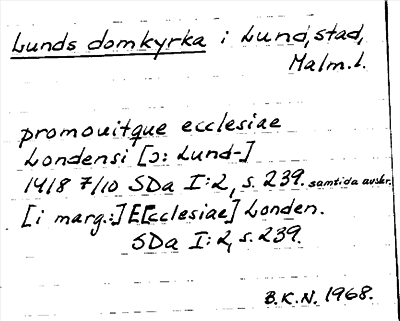 Lunds domkyrka i Lund, stad,
Malm.l.
promouitque ecclesiae
Londensi [ɔ: Lund-]
1418 7/10 SDa I:2, s. 239. samtida avskr.
[i marg.:] E[cclesiae] Londen.
SDa I:2, s. 239.
B.K.N. 1968.